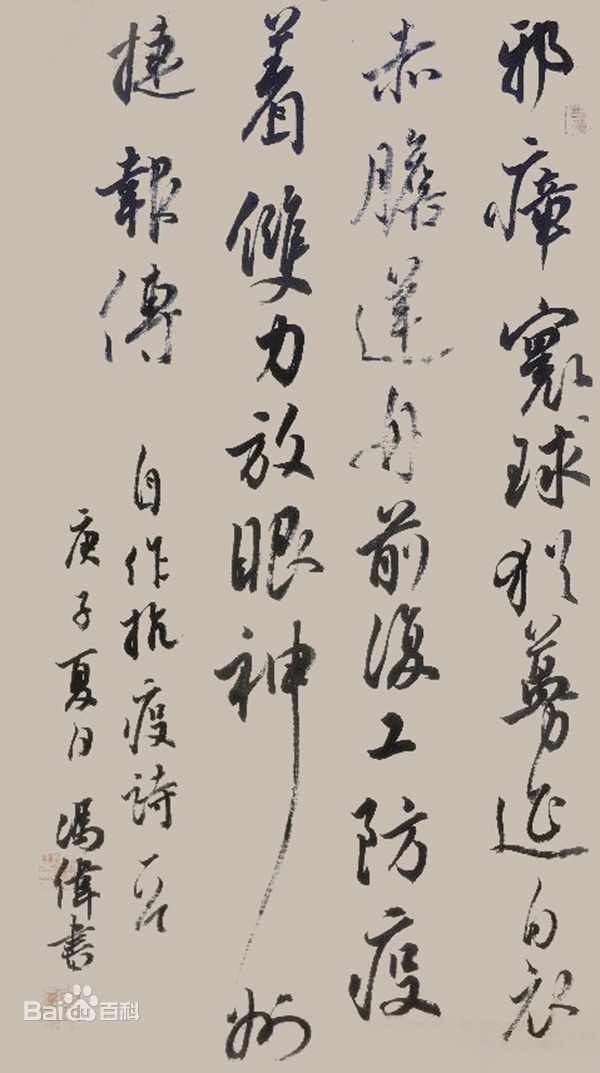 邪瘴寰球犹蔓延白衣
赤膽逆舟前復工防疫
着雙力放眼神州
捷報傳
自作抗疫詩一首
庚子夏日
馮偉書
Baidu百科